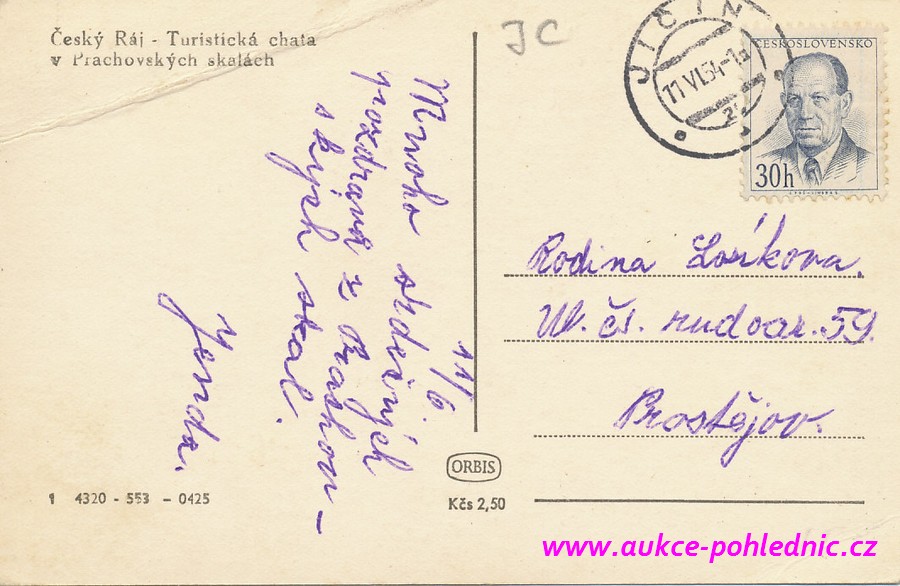 Český Ráj - Turistická chata
v Prachovských skalách
JC
JIČÍN
11.VI.54-1a
ČESKOSLOVENSKO
30h
11/6.
Mnoho srdečných
pozdravů z Prachov-
ských skal.
Jenda.
Rodina Losíkova.
Ul. čs. rudoar. 59.
Prostějov.
ORBIS
Kčs 2,50
1 4320 - 553 - 0425
www.aukce-pohlednic.cz